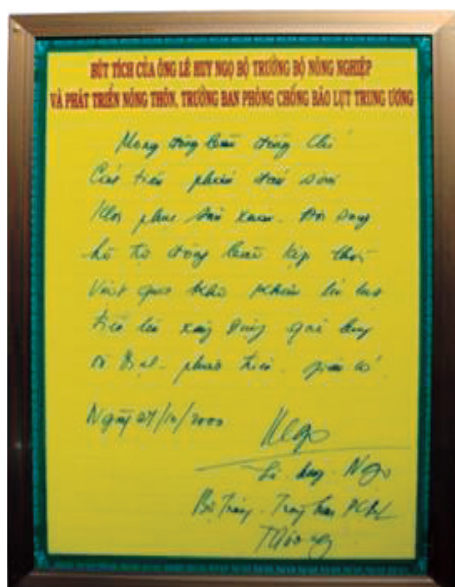 BÚT TÍCH CỦA ÔNG LÊ HUY NGỌ BỘ TRƯỞNG BỘ NÔNG NGHIỆP
VÀ PHÁT TRIỂN NÔNG THÔN, TRƯỞNG BAN PHÒNG CHỐNG BÃO LỤT TRUNG ƯƠNG
Mong đồng bào đồng chí
phấn đấu sớm
Khôi phục sản xuất. Đời sống
hỗ trợ đồng bào kịp thời
Vượt qua khó khăn lũ lụt
Tiến lên xây dựng quê
ổn định. phát triển.
Ngày 27/10/2000
Lê Huy Ngọ
Bộ Trưởng. Trưởng ban PCBL